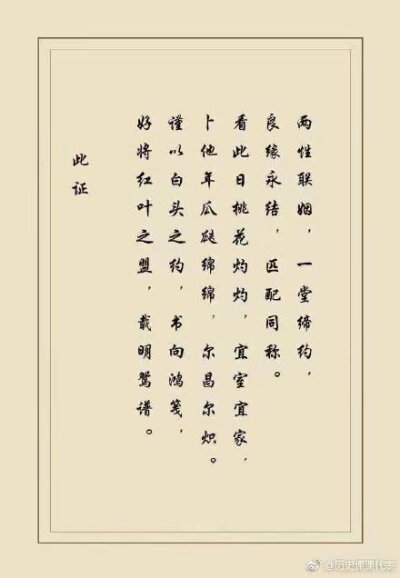 两性联姻，一堂缔约，
良缘永结，匹配同称。
看此日桃花灼灼，宜室宜家，
卜他年瓜瓞绵绵，尔昌尔炽。
谨以白头之约，书向鸿笺，
好将红叶之盟，载明鸳谱。
此证
@历史课课代表